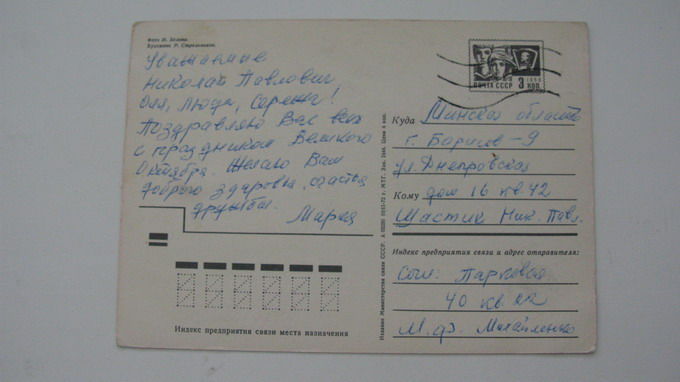 Фото И. Зенина.
Художник Р. Стрельников.
Уважаемые
Николай Павлович,
Оля, Люда, Сережа!
Поздравляю Вас всех
с праздником Великого
Октября. Желаю Вам
доброго здоровья, счастья
дружбы.
Мария
ПОЧТА СССР 3 КОП
1966
Куда Минская область
г. Борисов-9
ул. Днепровская
Кому дом 16 кв. 42
Шастик Ник. Павл.
Индекс предприятия связи и адрес отправителя:
Парковая
40 кв 22
М. ф. Михайленко
Индекс предприятия связи места назначения
Издание Министерства связи СССР.
Цена 4 коп.